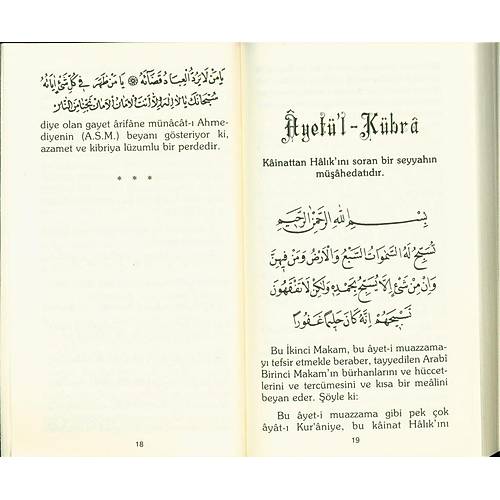 يَا مَنْ لَا يَرُدُّ الْعِبَادُ قَضَائَهُ ۞ يَا مَنْ ظَهَرَ فِى كُلِّ شَىْءٍ اٰيَاتُهُ
سُبْحَانَكَ يَا لَا اِلٰهَ اِلَّا اَنْتَ الْاَمَانُ الْاَمَانُ نَجِّنَا مِنَ النَّارِ
diye olan gayet ârifâne münâcat-ı Ahme-
diyenin (A.S.M.) beyanı gösteriyor ki,
azamet ve kibriya lüzumlu bir perdedir.
* * *
18
Âyetü'l-Kübrâ
Kâinattan Hâlık'ını soran bir seyyahın
müşâhedatıdır.
بِسْمِ اللّٰهِ الرَّحْمٰنِ الرَّحِيمِ
تُسَبِّحُ لَهُ السَّمٰوَاتُ السَّبْعُ وَالْاَرْضُ وَمَنْ فِيهِنَّ
وَاِنْ مِنْ شَىْءٍ اِلَّا يُسَبِّحُ بِحَمْدِهِ وَلٰكِنْ لَا تَفْقَهُونَ
تَسْبِيحَهُمْ اِنَّهُ كَانَ حَلِيمًا غَفُورًا
Bu İkinci Makam, bu âyet-i muazzama-
yı tefsir etmekle beraber, tayyedilen Arabî
Birinci Makam'ın bürhanlarını ve hüccet-
lerini ve tercümesini ve kısa bir meâlini
beyan eder. Şöyle ki:
Bu âyet-i muazzama gibi pek çok
âyât-ı Kur'âniye, bu kâinat Hâlık'ını
19